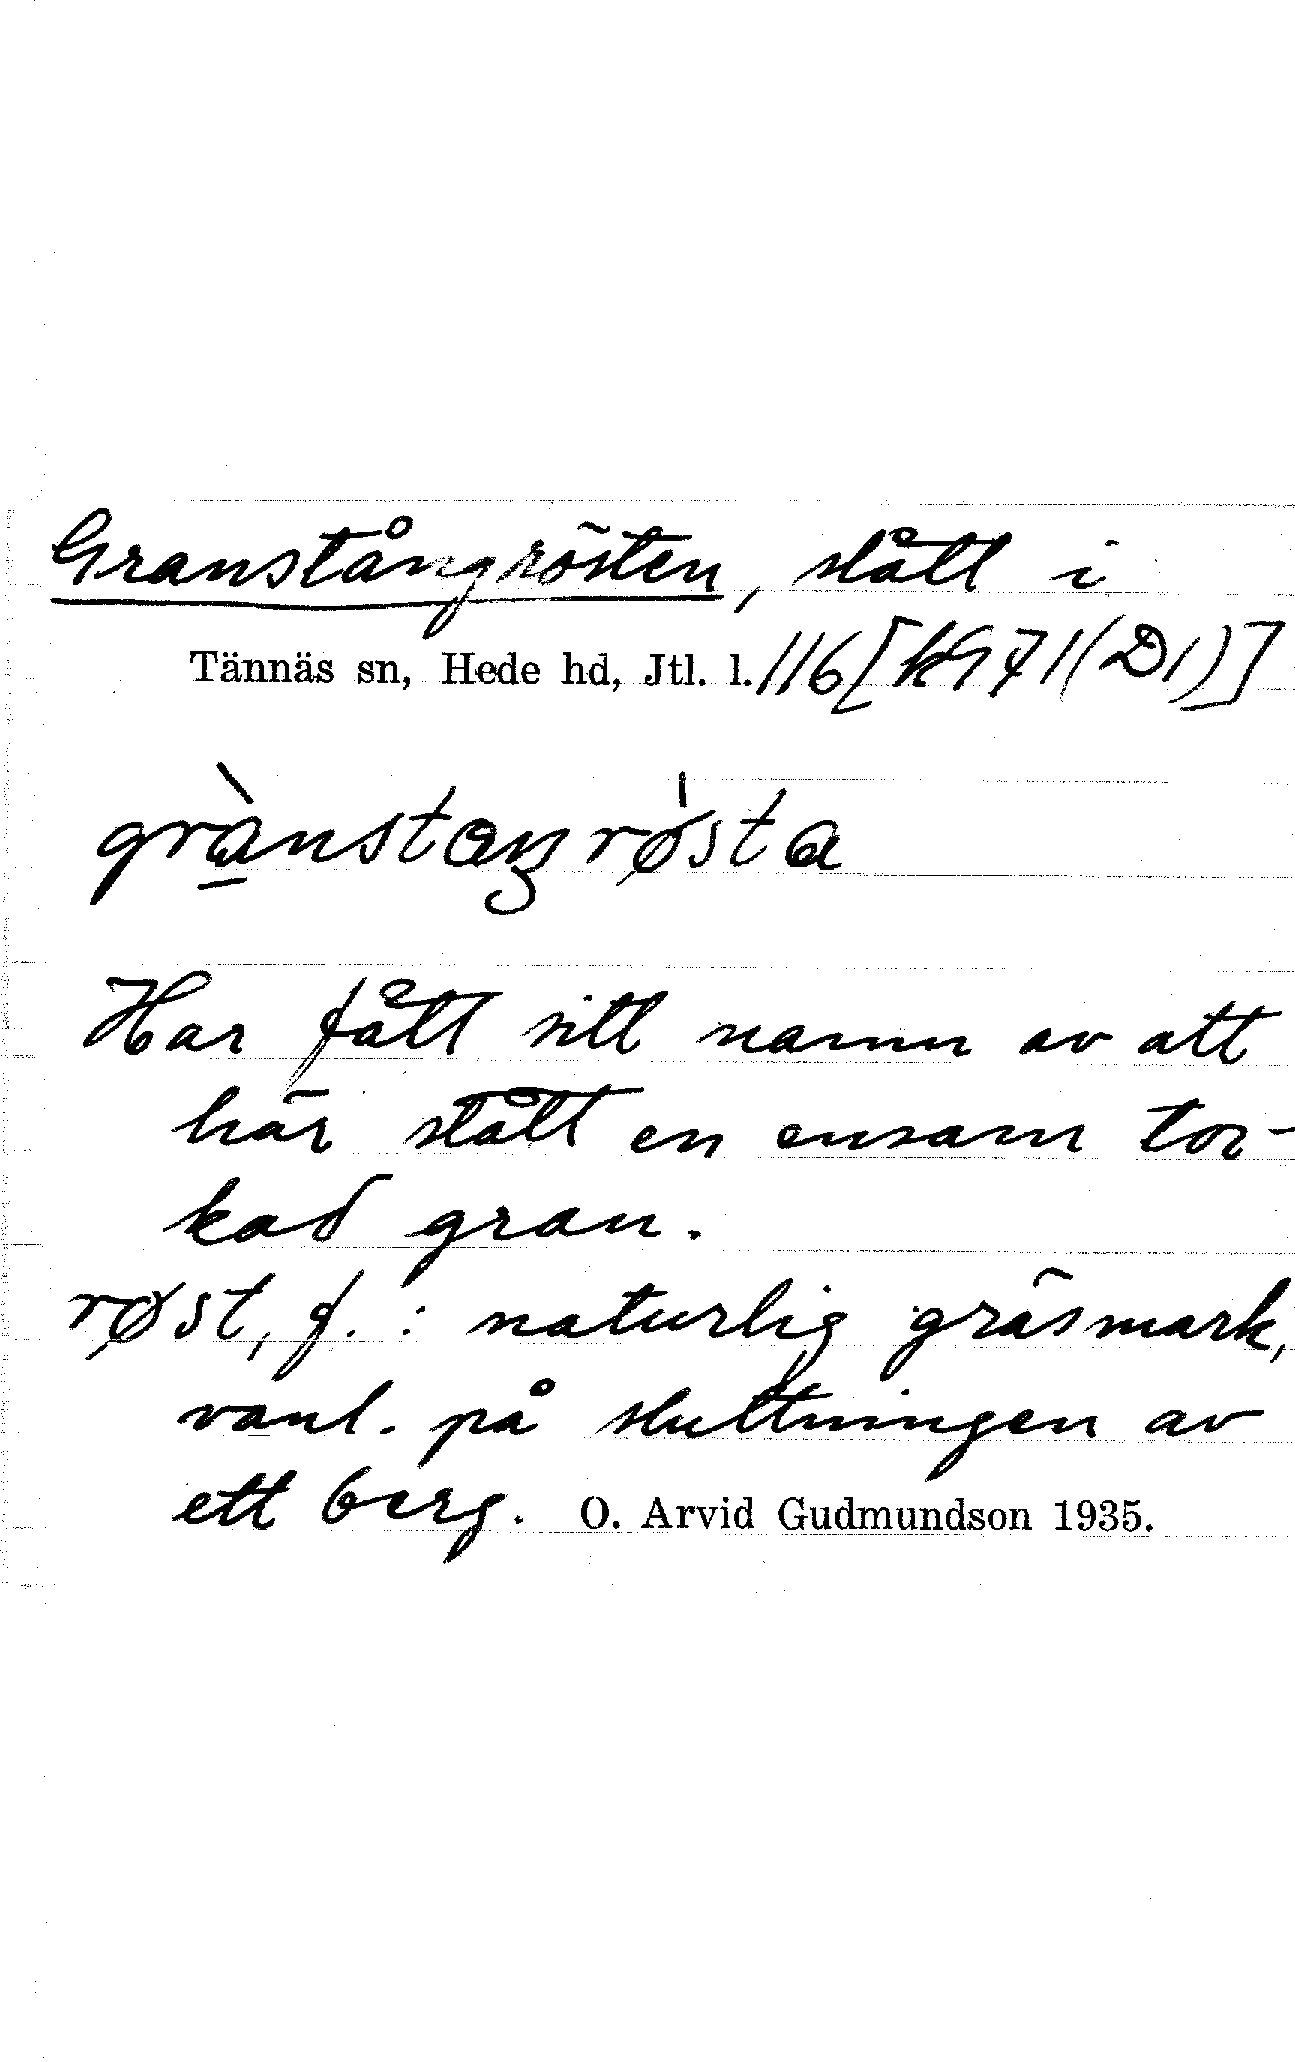 Granstångrösten, slått i
Tännäs sn, Hede hd, Jtl. l. 116 [k971(D1)]
grànstaŋrø̍sta
Har fått sitt namn av att
här stått en ensam tor-
kad gran.
røst, f. : naturlig gräsmark,
vanl. på sluttningen av
ett berg. O. Arvid Gudmundson 1935.